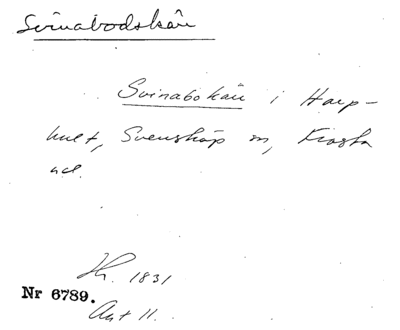 Svinabodskärr
Svinabokärr i Harp-
hult, Svensköp sn, Frosta
hd.
Hr. 1831
Nr 6789.
Akt 11.